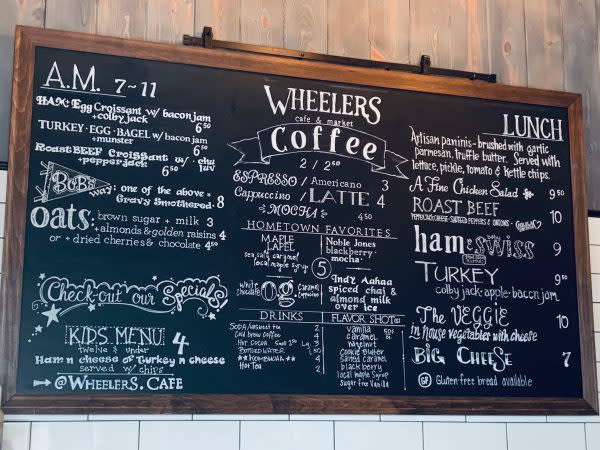 A.M. 7~11
HAM·Egg Croissant w/ bacon jam
+colby jack 6 50
TURKEY·EGG·BAGEL w/ bacon jam
+munster 6 50
Roast BEEF Croissant w/ chu luv
+pepperjack 6 50
BOB'S way: one of the above +
Gravy Smothered. 8
oats: brown sugar + milk 3
+ almonds & golden raisins 4
or + dried cherries & chocolate 4 50
Check-out our Specials
KIDS MENU 4
twelve & under
Ham n cheese or Turkey n cheese
served w/ chips
@WHEELERS.CAFE
WHEELERS
cafe & market
Coffee
2 / 2 50
ESPRESSO / Americano 3
Cappuccino / LATTE 4
MOCHA 4 50
HOMETOWN FAVORITES
MAPLE LAPEL
sea salt, caramel
local maple syrup
Noble Jones
blackberry
mocha
5
White Chocolate Og Caramel Cappuccino
Indy Aahaa
spiced chai &
almond milk
over ice
DRINKS
SODA/unsweet tea 2
Cold brew coffee 4
Hot Cocoa
BOTTLED WATER
KOMBUCHA 4
Hot Tea 2
FLAVOR SHOTS
vanilla
caramel
hazelnut
cookie butter
salted caramel
blackberry
local maple syrup
sugar free Vanilla
LUNCH
Artisan paninis - brushed with garlic
parmesan, truffle butter. Served with
lettuce, pickle, tomato & kettle chips.
A Fine Chicken Salad 9 50
ROAST BEEF 10
PEPPERJACK CHEESE
ham & swiss 9
TURKEY 9 50
colby jack·apple·bacon jam
The VEGGIE 10
In House vegetables with cheese
BIG CHEESE 7
GF Gluten free bread available